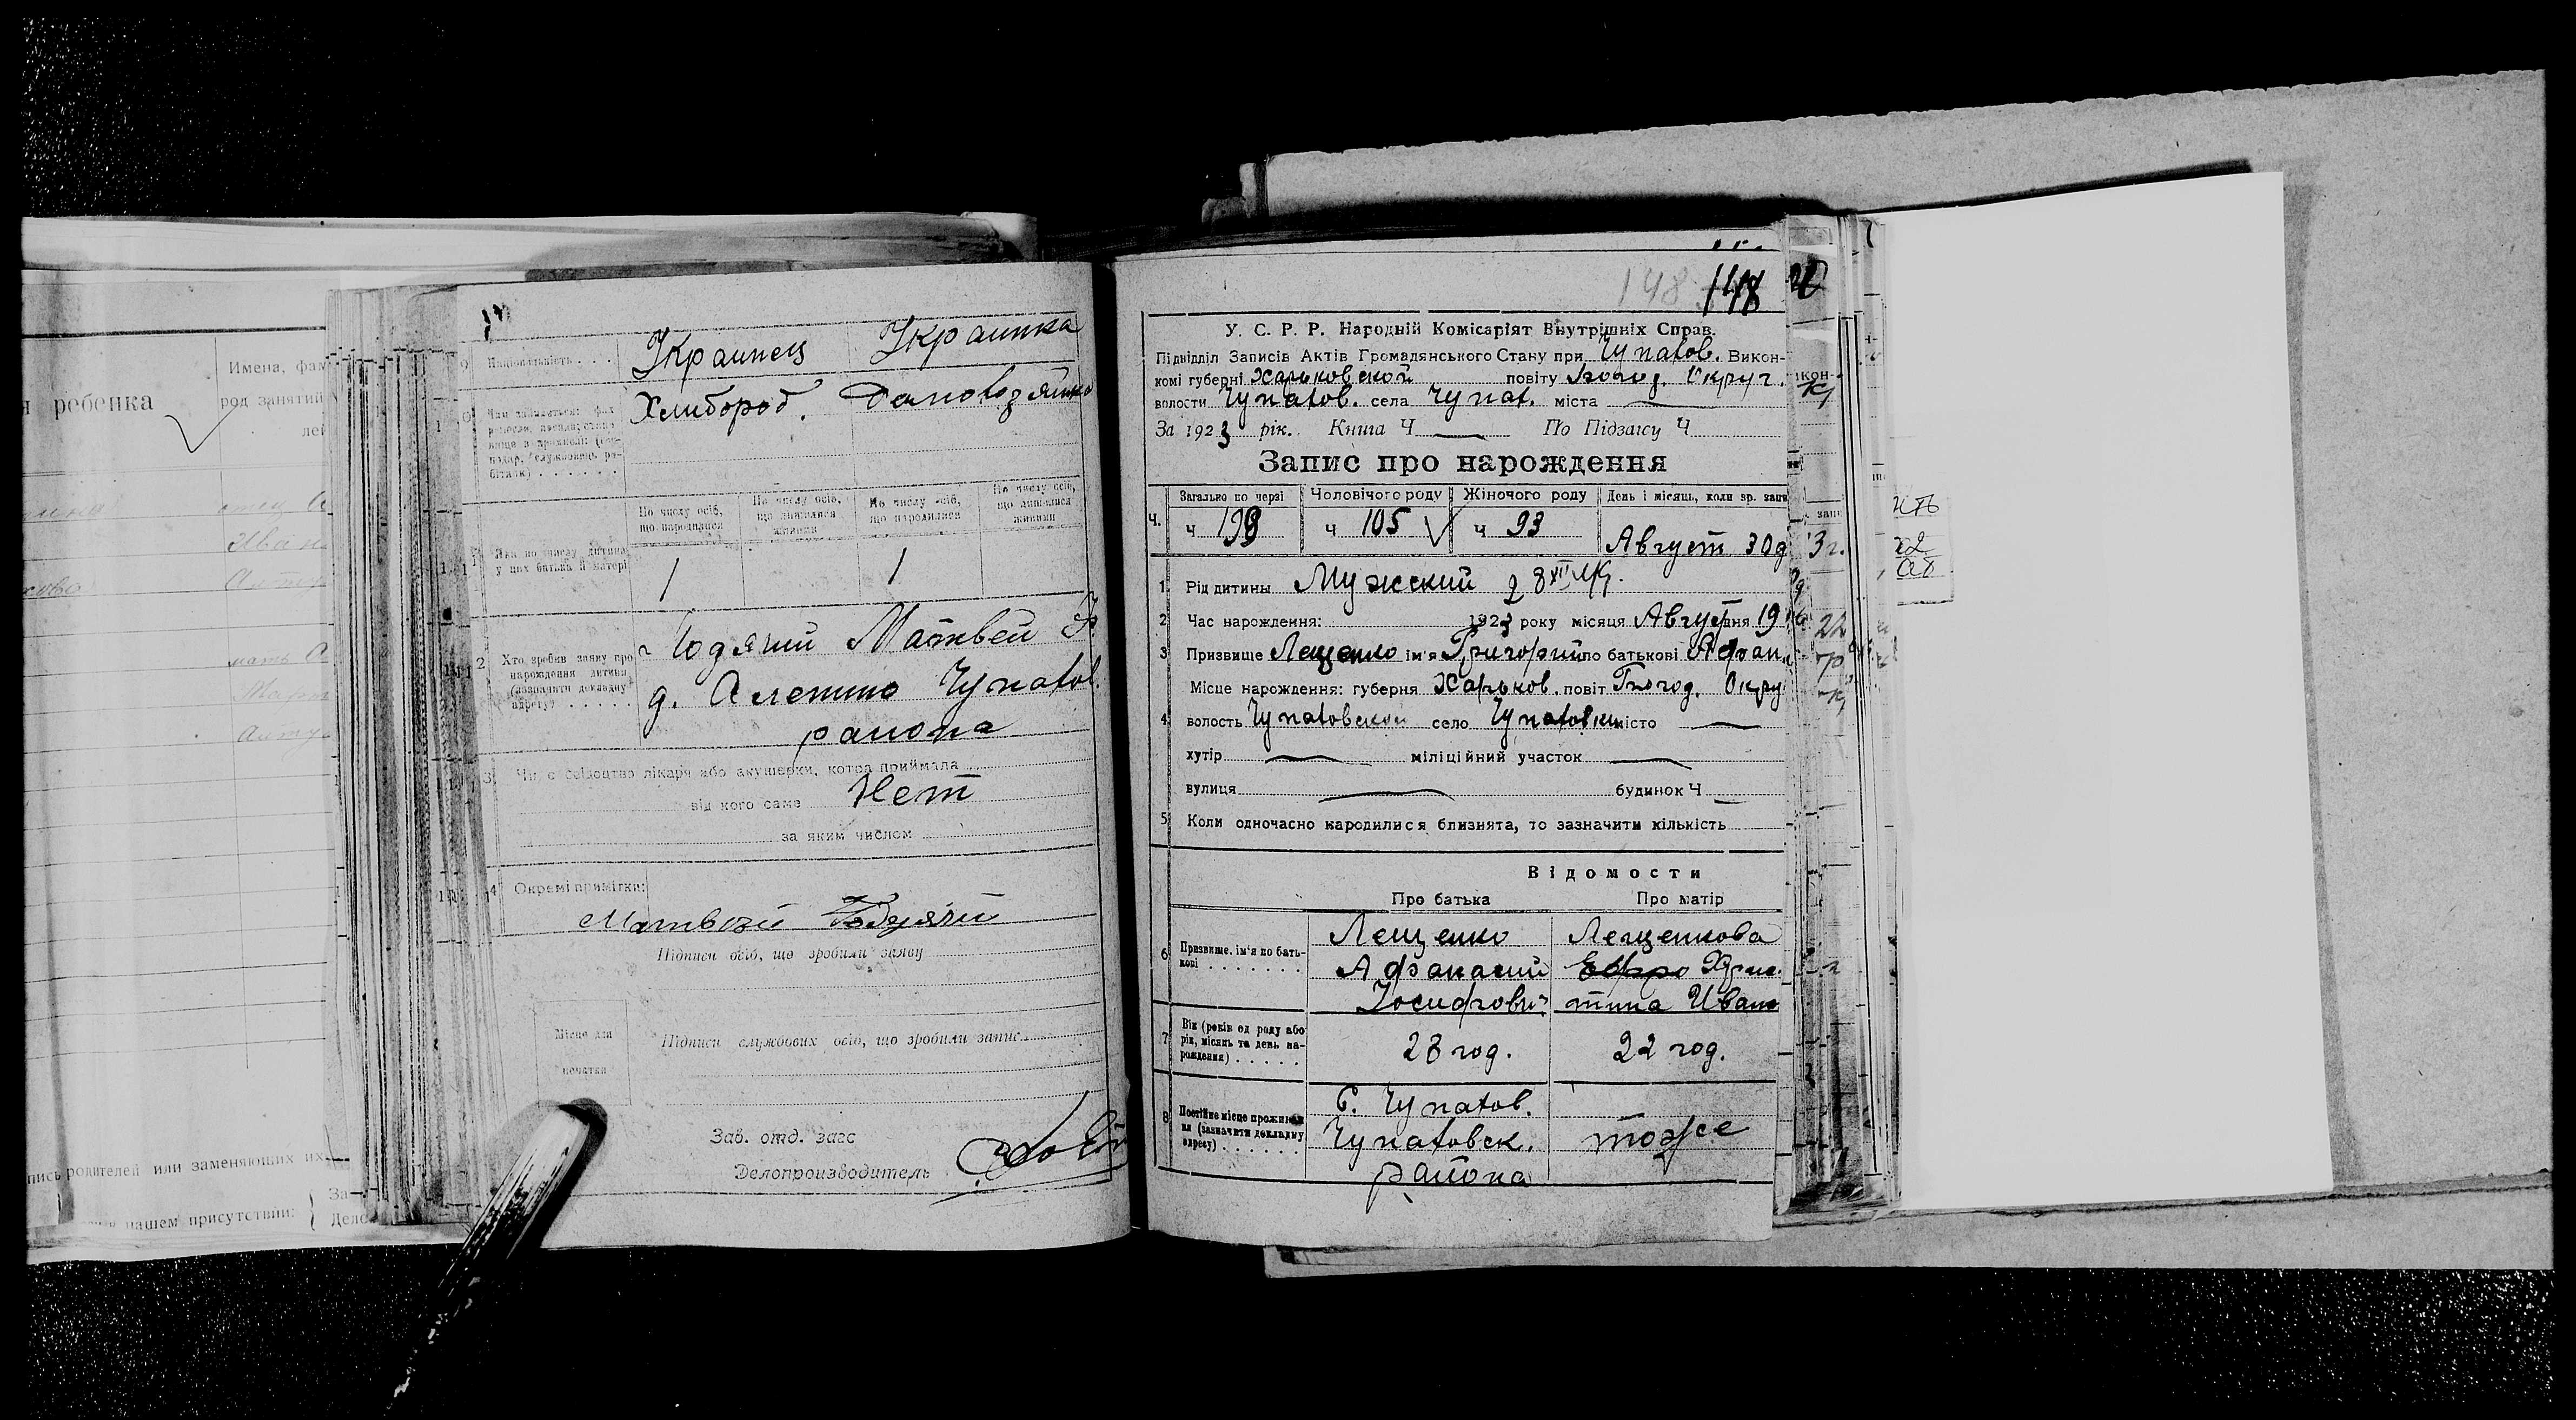 Имена, фам
я ребенка
род занятий
лей
Иван
мать
9 Національність . . . Украинец Украинка
Хлибороб. Домохозяйка
По числу осіб, що народилися
По числу осіб, що лишилися живими
По числу осіб, що народилися
По числу осіб, що лишилися живими
Яка по числу дитина у цих батька й матері
1 1
2 Хто зробив заяву про нарождення дитини (зазначити докладну адресу) . . . . .
Матвей
д. Аленино Чупатов.
района
3 Чи є свідоцтво лікаря або акушерки, котра приймала
від кого саме Нет
за яким числом
4 Окремі примітки:
Матвей
Підписи осіб, що зробили заяву
Місце для
печатки
Підписи службових осіб, що зробили запис
Зав. отд. загс
Делопроизводитель
пись родителей или заменяющих их
нашем присутствии:
148 148
У. С. Р. Р. Народній Комісаріят Внутрішніх Справ.
Підвідділ Записів Актів Громадянського Стану при Чупатов. Викон-
комі губерні Харьковской повіту Богод. Округ.
волости Чупатов. села Чупат. міста
За 1923 рік. Книга Ч По Підзагсу Ч
Запис про нарождення
Загально по черзі Чоловічого роду Жіночого роду День і місяць, коли зр. запи
ч. ч 198 ч 105 ч 93 Август 30 д
1 Рід дитини Мужский
2 Час нарождення: 1923 року місяця Август дня 19
3 Призвище Лещенко ім'я Григорий по батькові Афан
4 Місце нарождення: губерня Харьков. повіт Богод. Окру
волость Чупатовской село Чупатовки місто
хутір міліційний участок
вулиця будинок Ч
5 Коли одночасно народилися близнята, то зазначити кількість
Відомости
Про батька Про матір
6 Призвище, ім'я по батькові . . . . . . .
Лещенко Лещенкова
Афанасий Хрис
Иосифович тина Ивано
7 Вік (років од роду або рік, місяць та день нарождення) . . . . . 28 год. 22 год.
8 Постійне місце проживання (зазначити докладну адресу) . . . . . . .
С. Чупатов.
Чупатовск. тоже
района